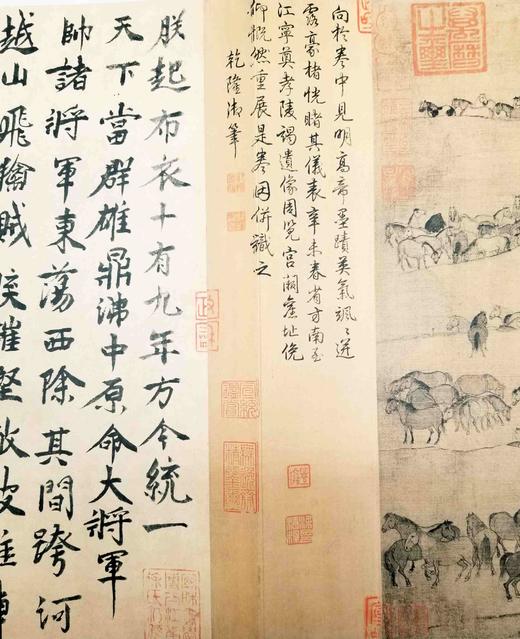 向於卷中見明高帝墨蹟英氣颯〻迸
露豪楮恍睹其儀表辛未春省方南至
江寧奠孝陵謁遺像周覽宮闕舊址俛
仰慨然重展是卷因併識之
乾隆御筆
朕起布衣十有九年方今統一
天下當群雄鼎沸中原命大將軍
帥諸將軍東蕩西除其間跨河
越山飛擒賊侯摧堅敵破雄陣